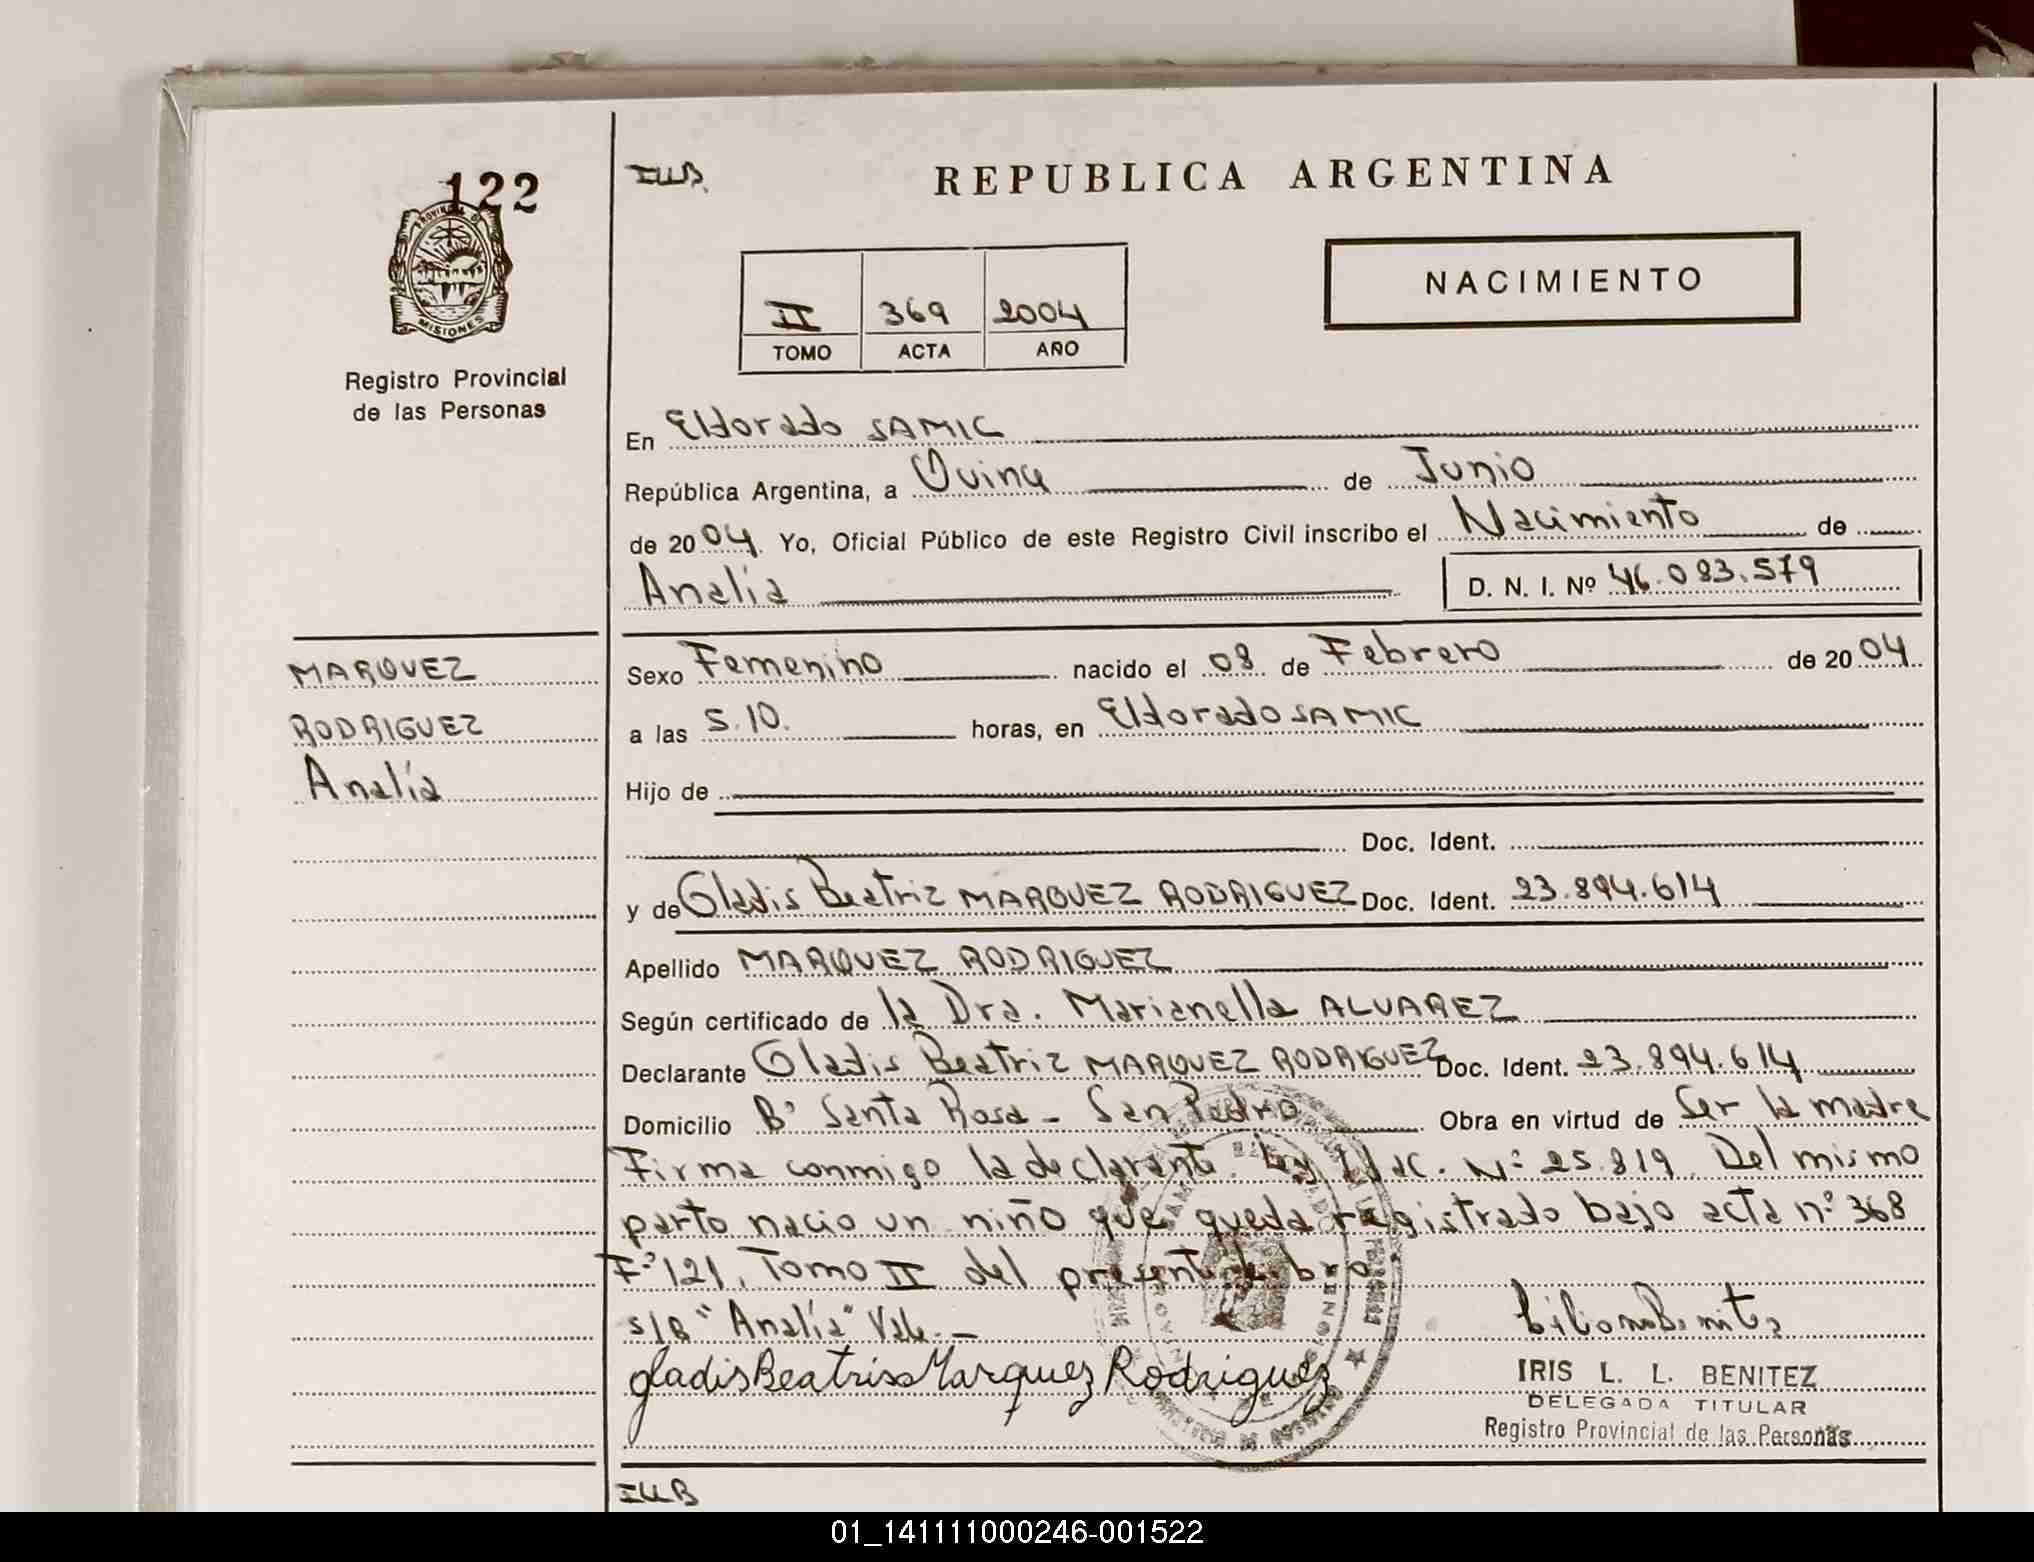 122
PROVINCIA DE
MISIONES
Registro Provincial
de las Personas
MARQUEZ
RODRIGUEZ
Analía
ILLB.
REPUBLICA ARGENTINA
NACIMIENTO
II 369 2004
TOMO ACTA AÑO
En Eldorado SAMIC
República Argentina, a Quince de Junio
de 2004. Yo, Oficial Público de este Registro Civil inscribo el Nacimiento de
Analía D. N. I. Nº 46.083.579
Sexo Femenino nacido el 08 de Febrero de 2004
a las 5.10. horas, en Eldorado SAMIC
Hijo de
Doc. Ident.
y de Gladis Beatriz MARQUEZ RODRIGUEZ Doc. Ident. 23.894.614
Apellido MARQUEZ RODRIGUEZ
Según certificado de la Dra. Marianella ALVAREZ
Declarante Gladis Beatriz MARQUEZ RODRIGUEZ Doc. Ident. 23.894.614
Domicilio Bº Santa Rosa - San Pedro Obra en virtud de Ser la madre
Firma conmigo la declarante. Ley Nac. Nº 25.819. Del mismo
parto nacio un niño que queda registrado bajo acta nº 368
Fº 121, Tomo II del presente libro
s/R "Analía" Vale. -
gladis Beatris Marquez Rodriguez
IRIS L. L. BENITEZ
DELEGADA TITULAR
Registro Provincial de las Personas
ILLB
01_141111000246-001522